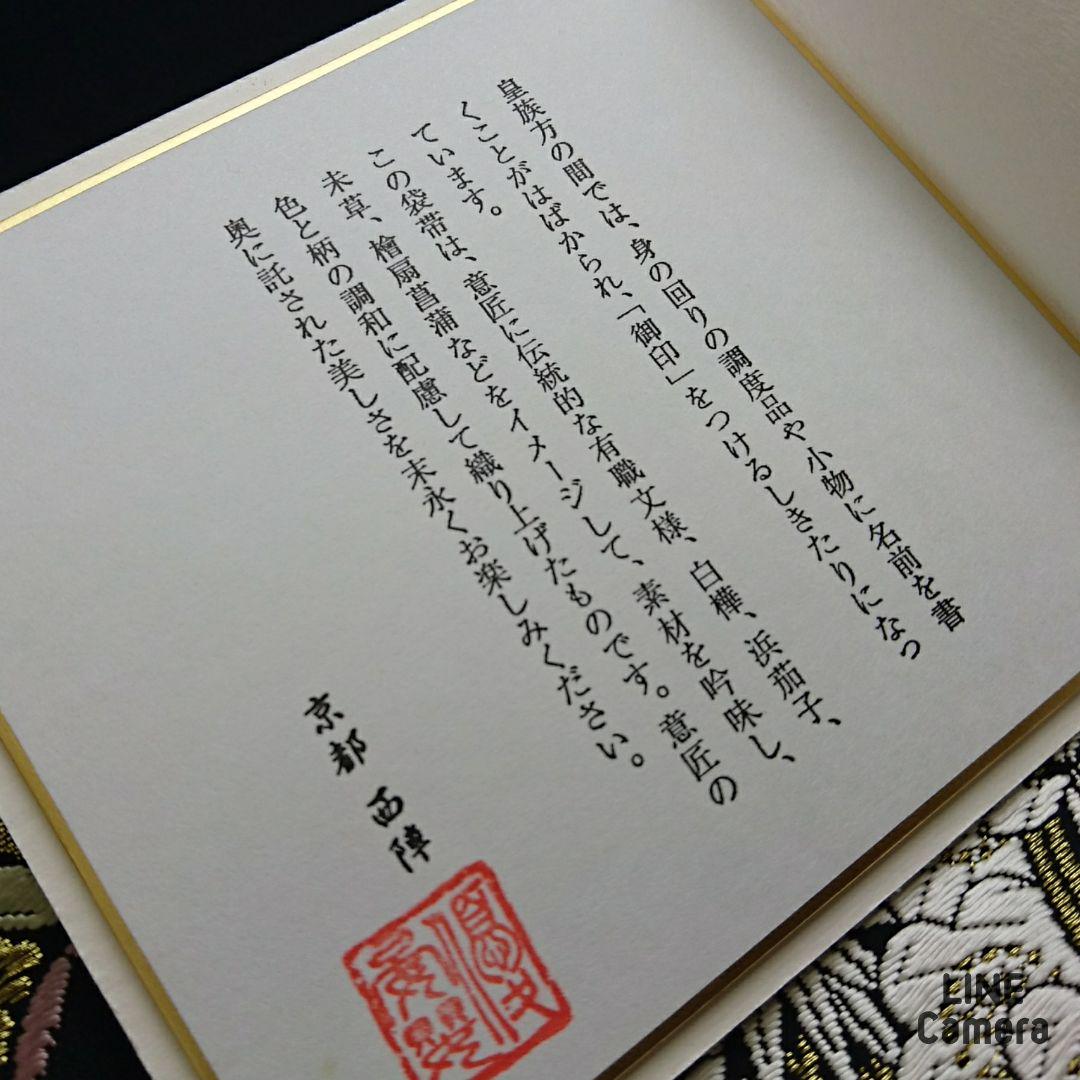 皇族方の間では、身の回りの調度品や小物に名前を書
くことがはばかられ、「御印」をつけるしきたりになっ
ています。
この袋帯は、意匠に伝統的な有職文様、白樺、浜茄子、
未草、檜扇菖蒲などをイメージして、素材を吟味し、
色と柄の調和に配慮して織り上げたものです。意匠の
奥に託された美しさを末永くお楽しみください。
京都 西陣
LINE
Camera